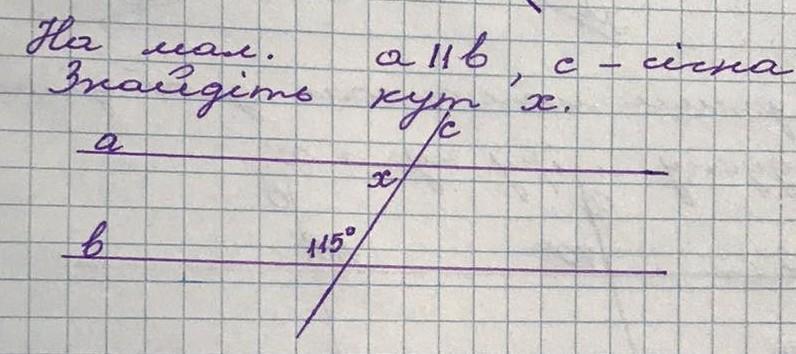 На мал. a || b, c - січна
Знайдіть кут x.
c
a
x
115°
b